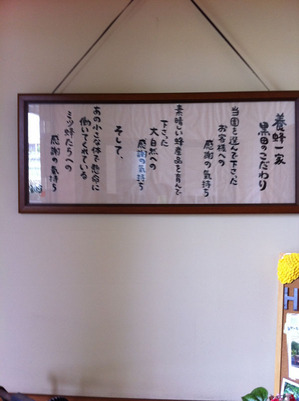 養蜂一家
黒田のこだわり
当園を選んで下さった
お客様への
感謝の気持ち
素晴しい蜂産品を育んで
下さった
大自然への
感謝の気持ち
そして、
あの小さな体で懸命に
働いてくれている
ミツ蜂たちへの
感謝の気持ち
H